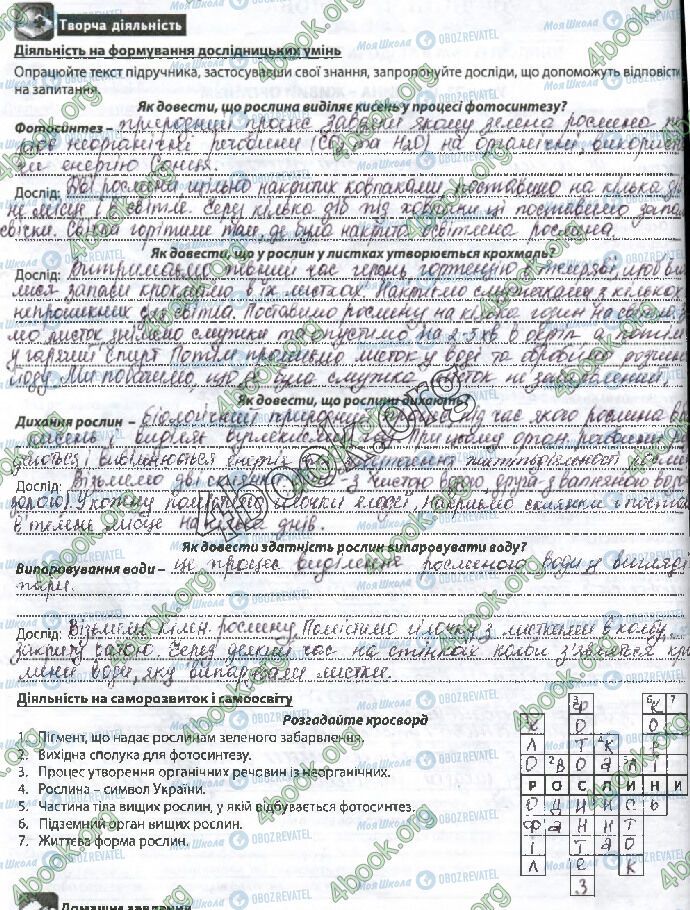 Творча діяльність
Діяльність на формування дослідницьких умінь
Опрацюйте текст підручника, застосувавши свої знання, запропонуйте досліди, що допоможуть відповісти
на запитання.
Як довести, що рослина виділяє кисень у процесі фотосинтезу?
Фотосинтез – природний процес завдяки якому зелена рослина
неорганічні речовини (CO2 та H2O) на органічні, використ
енергію
Дослід: Дві рослини щільно накритих ковпаками поставимо на кілька діб
не місце і світле. Через кілька діб під поставимо запа
свічки. Свічка горітиме там, де була накрита освітлена рослина.
Як довести, що у рослин у листках утворюється крохмаль?
Дослід: Витримаємо певний час герань, гортензію темряві, щоб ви
лися запаси крохмалю в їх листках. Накриємо смужками з кількох
непроникних для світла. Поставимо рослину на кілька годин на
мо листок знімемо смужки та опустимо на 2-3 хв в окріп, а потім
у гарячий спирт. Потім промиємо листок у воді та обробимо розчин
йоду. Ми побачимо, що де була смужка листок не забарвлений.
Як довести, що рослини дихають?
Дихання рослин – біологічний природний процес під час якого рослина в
кисень і виділяє вуглекислий газ. При цьому орган. речовини
і вивільнюється енергія життєдіяльності
Дослід: Візьмемо дві склянки з чистою водою, друга з вапняною вод
водою). У кожну гілочки елодеї, накриємо склянки і постав
в темне місце на кілька днів.
Як довести здатність рослин випаровувати воду?
Випаровування води – це процес виділення рослиною води у вигляді
пари.
Дослід: Візьмемо кімн. рослину. Помістимо гілочку з листками в колбу,
закриту ватою. Через деякий час на стінках колби з'являться кра
лини води, яку випарували листки.
Діяльність на саморозвиток і самоосвіту
Розгадайте кросворд
1. Пігмент, що надає рослинам зеленого забарвлення.
2. Вихідна сполука для фотосинтезу.
3. Процес утворення органічних речовин із неорганічних.
4. Рослина – символ України.
5. Частина тіла вищих рослин, у якій відбувається фотосинтез.
6. Підземний орган вищих рослин.
7. Життєва форма рослин.
3 Ф 6 К 7
Х О О
Л Т 4 К Р
О 2 В О А 5 Л І
Р О С Л И Н И
О Д И И С Ь
Ф А Н Н Т
І Т А О
Л Е К
З
Домашнє завдання
4book.org
Моя Школа
OBOZREVATEL